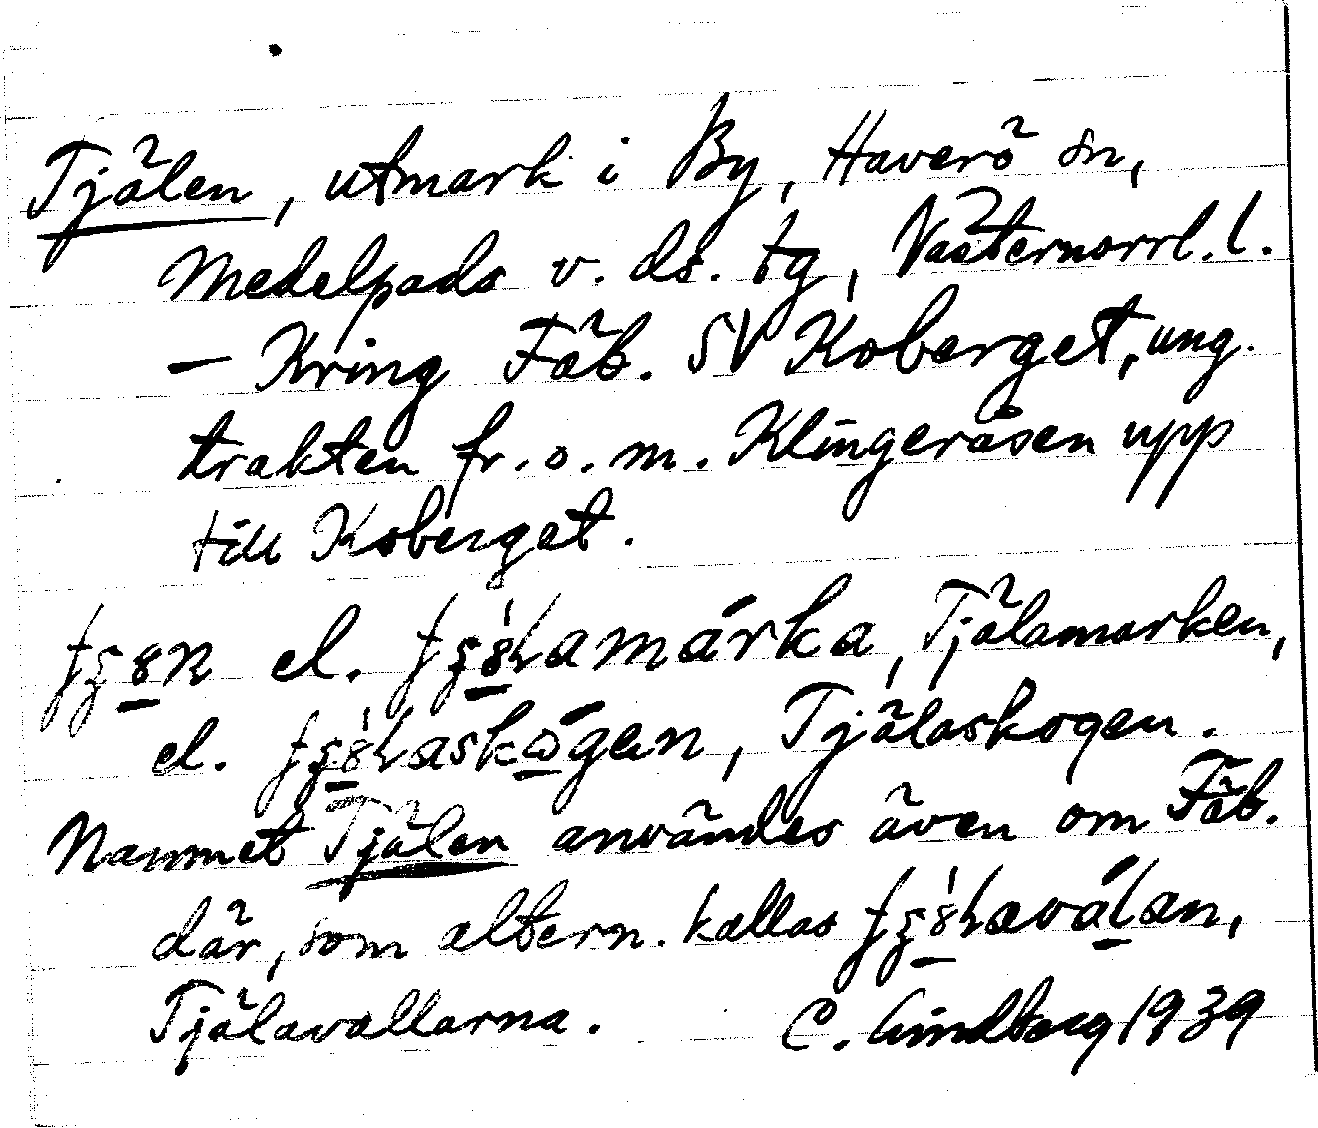 Tjälen, utmark i By, Haverö sn,
Medelpads v. ds. tg, Västernorrl. l.
— Kring Fäb. SV Koberget, ung.
trakten fr. o. m. Klingeråsen upp
till Koberget.
el. Tjälamarken,
el. Tjälaskogen.
Namnet Tjälen användes även om Fäb.
där, som altern. kallas
Tjälavallarna. C. Lindberg 1939